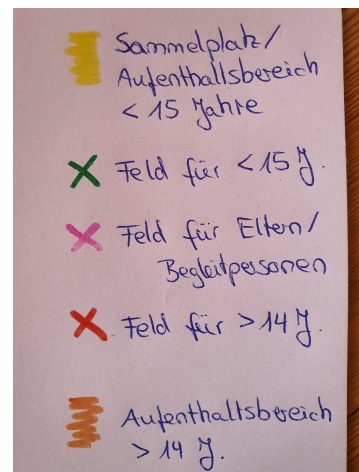 Sammelplatz/
Aufenthaltsbereich
< 15 Jahre
Feld für < 15 J.
Feld für Eltern/
Begleitpersonen
Feld für > 14 J.
Aufenthaltsbereich
> 14 J.